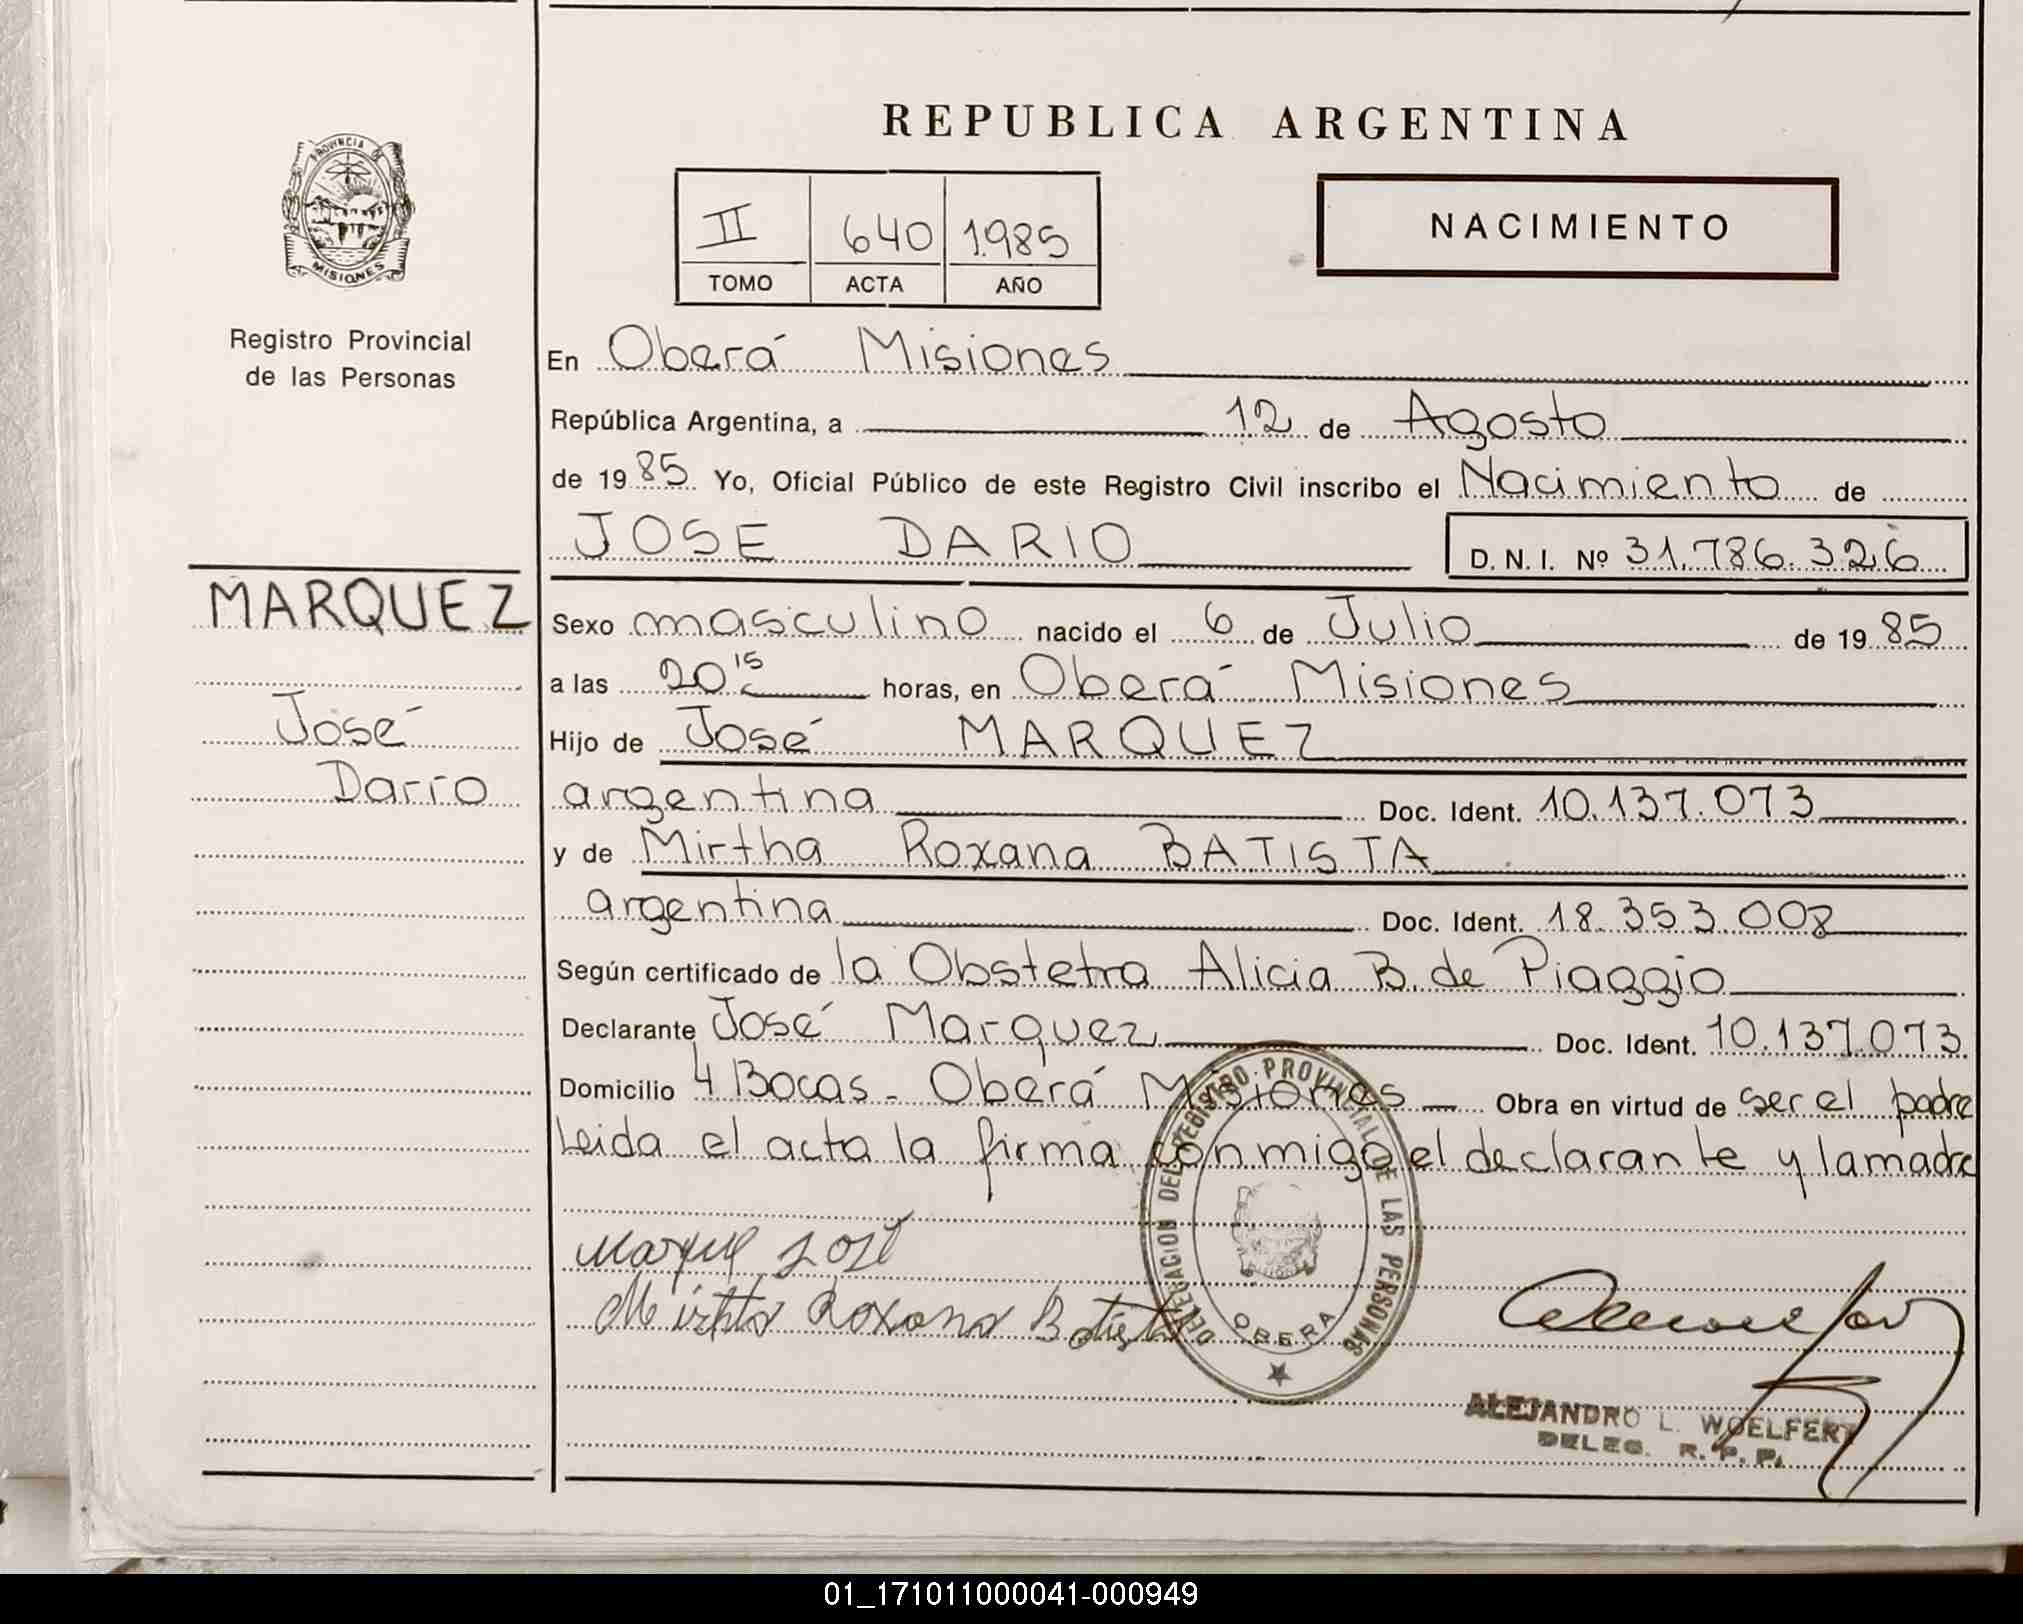 PROVINCIA DE
MISIONES
Registro Provincial
de las Personas
MARQUEZ
José
Darío
REPUBLICA ARGENTINA
II 640 1985
TOMO ACTA AÑO
NACIMIENTO
En Oberá Misiones
República Argentina, a 12 de Agosto
de 1985. Yo, Oficial Público de este Registro Civil inscribo el Nacimiento de
JOSE DARIO D. N. I. Nº 31.786.326
Sexo masculino nacido el 6 de Julio de 1985
a las 20 15 horas, en Oberá Misiones
Hijo de José MARQUEZ
argentina Doc. Ident. 10.137.073
y de Mirtha Roxana BATISTA
argentina Doc. Ident. 18.353.008
Según certificado de la Obstetra Alicia B. de Piaggio
Declarante José Marquez Doc. Ident. 10.137.073
Domicilio 4 Bocas - Oberá Misiones Obra en virtud de ser el padre
Leida el acta la firma conmigo el declarante y la madre
DELEGACION DEL REGISTRO PROVINCIAL DE LAS PERSONAS
OBERA
Marquez José
Mirtha Roxana Batista
ALEJANDRO L. WOELFERT
DELEG. R. P. P.
01_171011000041-000949